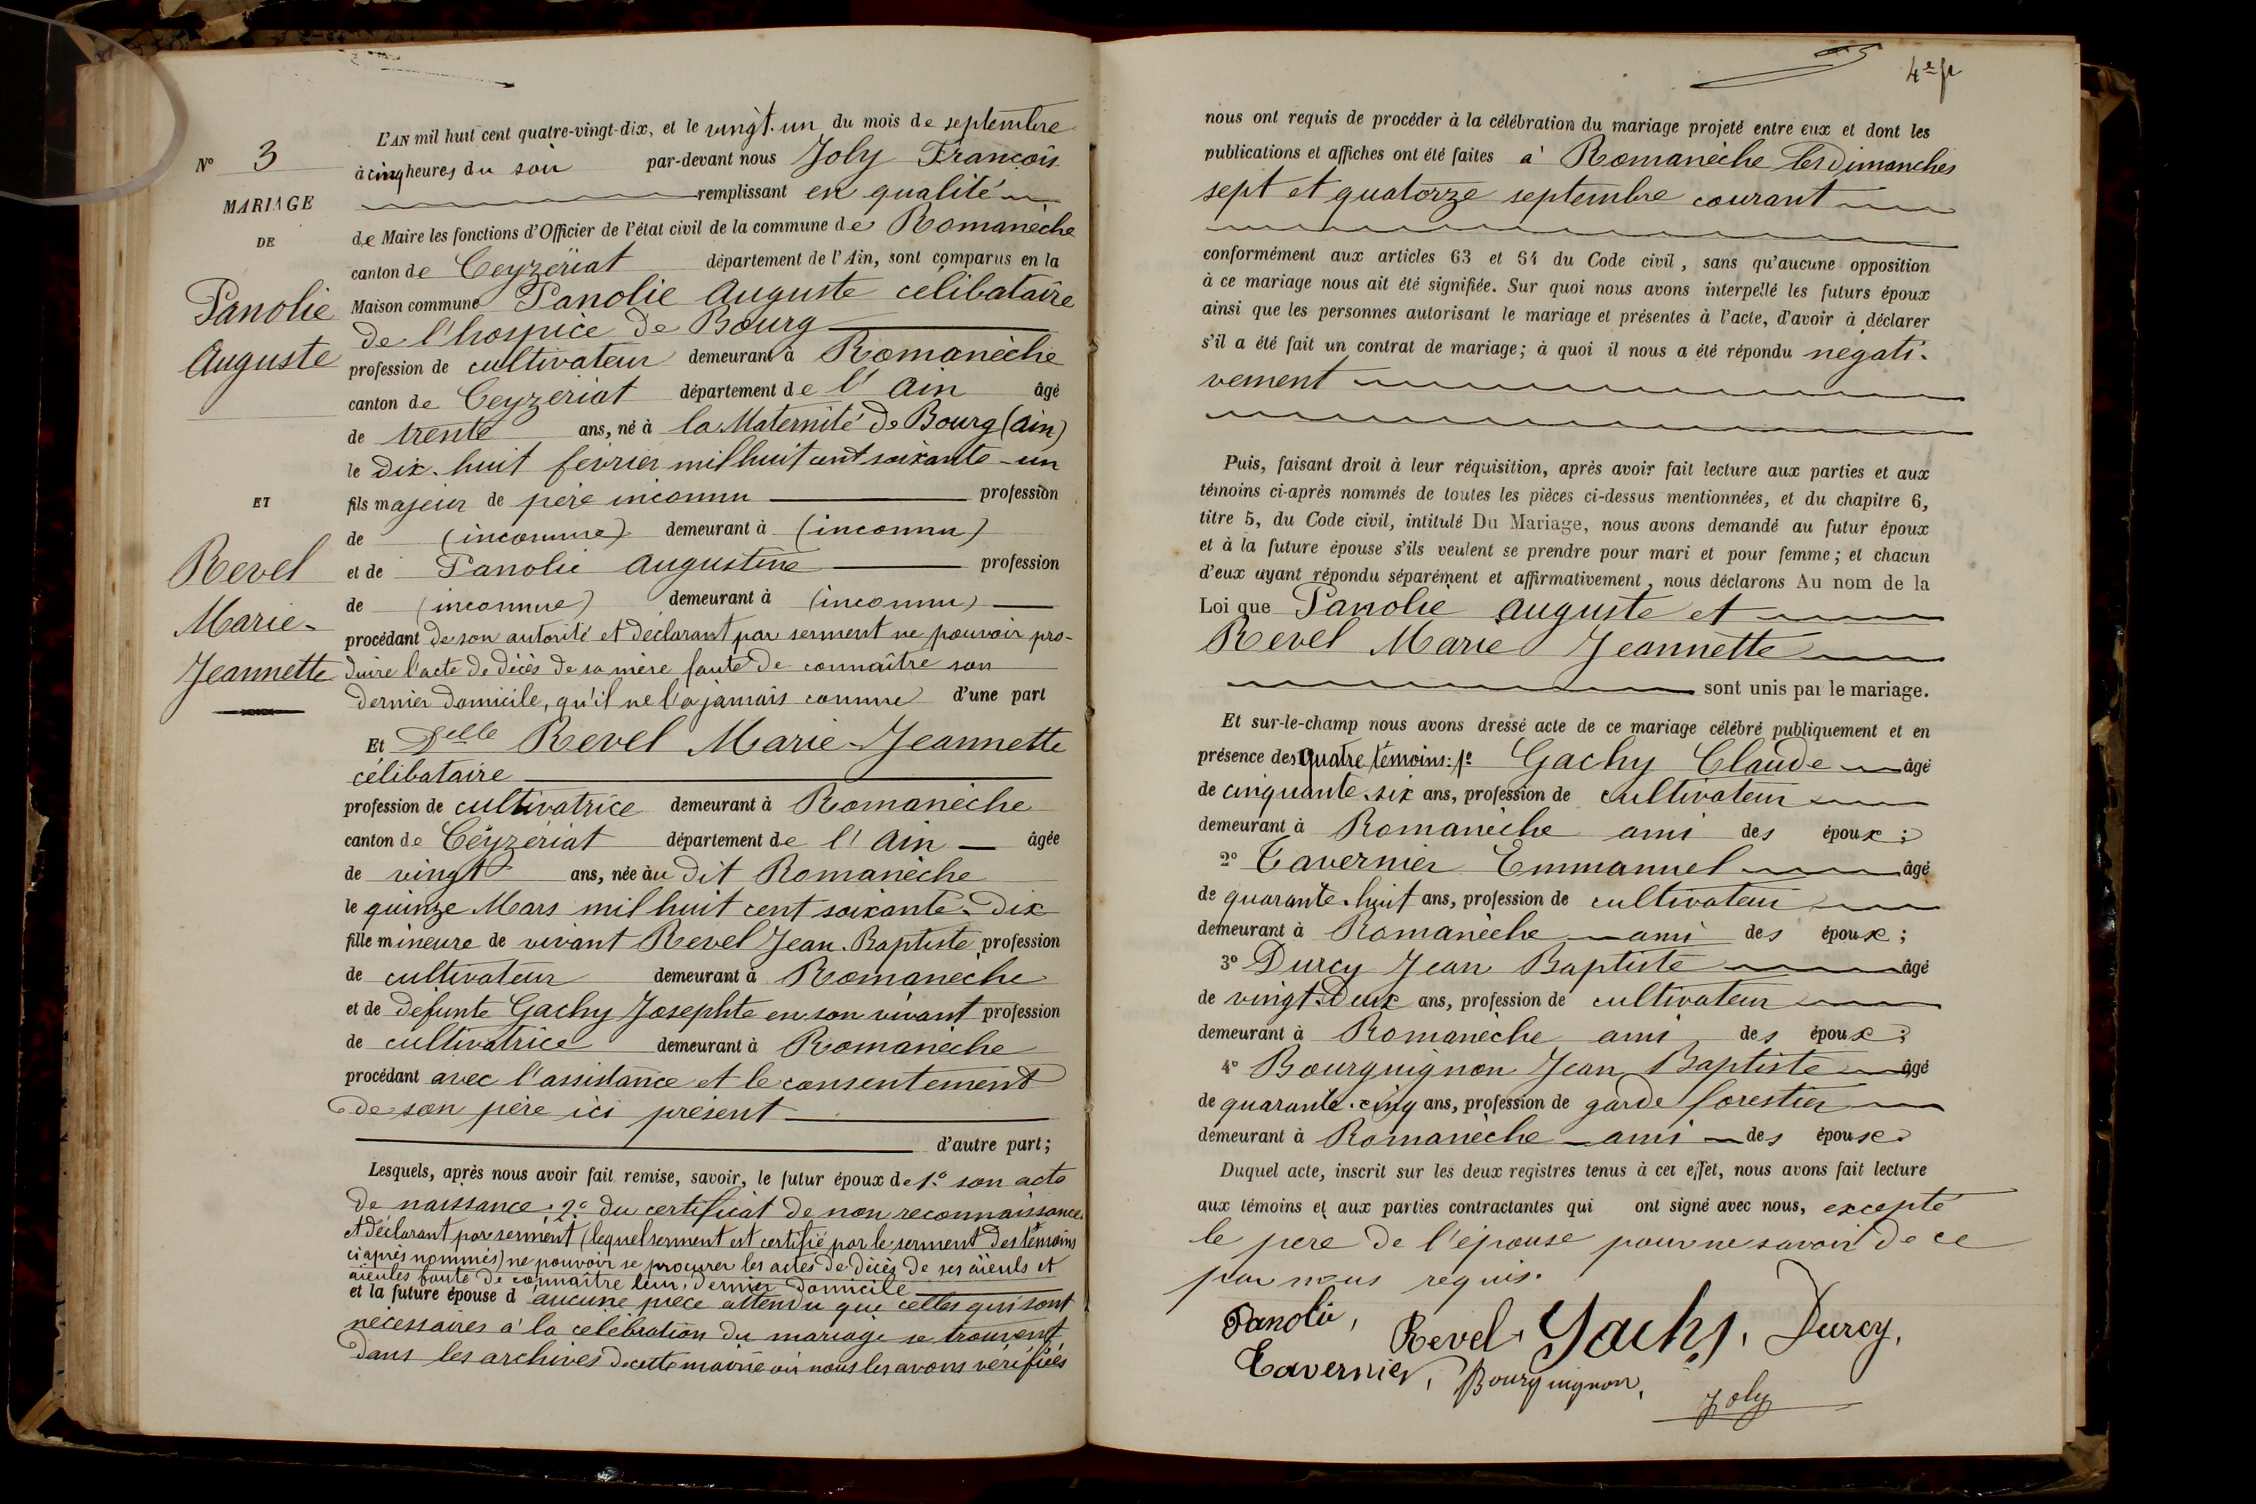 N° 3
MARIAGE
DE
Panolie
Auguste
ET
Revel
Marie-
Jeannette
L'AN mil huit cent quatre-vingt-dix, et le vingt-un du mois de septembre
à cinq heures du soir par-devant nous Joly François
remplissant en qualité
de Maire les fonctions d'Officier de l'état civil de la commune de Romanèche
canton de Ceyzériat département de l'Ain, sont comparus en la
Maison commune Panolie Auguste célibataire
de l'hospice de Bourg
profession de cultivateur demeurant à Romanèche
canton de Ceyzériat département de l'Ain âgé
de trente ans, né à la Maternité de Bourg (Ain)
le dix-huit février mil huit cent soixante-un
fils majeur de père inconnu profession
de (inconnue) demeurant à (inconnu)
et de Panolie Augustine profession
de (inconnue) demeurant à (inconnu)
procédant de son autorité et déclarant par serment ne pouvoir pro-
duire l'acte de décès de sa mère faute de connaître son
dernier domicile, qu'il ne l'a jamais connue d'une part
Et Delle Revel Marie-Jeannette
célibataire
profession de cultivatrice demeurant à Romanèche
canton de Céyzeriat département de l'Ain âgée
de vingt ans, née àu dit Romanèche
le quinze Mars mil huit cent soixante-dix
fille mineure de vivant Revel Jean-Baptiste profession
de cultivateur demeurant à Romanèche
et de défunte Gachy Josephte en son vivant profession
de cultivatrice demeurant à Romanèche
procédant avec l'assistance et le consentement
de son père ici présent
d'autre part;
Lesquels, après nous avoir fait remise, savoir, le futur époux de 1° son acte
de naissance. 2° du certificat de non reconnaissance.
et déclarant par serment (lequel serment est certifié par le serment des témoins
ci après nommés) ne pouvoir se procurer les actes de décès de ses aïeuls et
aïeules faute de connaître leur dernier domicile
et la future épouse d'aucune pièce attendu que celles qui sont
nécessaires à la célébration du mariage se trouvent
dans les archives de cette mairie où nous les avons vérifiées
4e p
nous ont requis de procéder à la célébration du mariage projeté entre eux et dont les
publications et affiches ont été faites à Romanèche les Dimanches
sept et quatorze septembre courant
conformément aux articles 63 et 64 du Code civil, sans qu'aucune opposition
à ce mariage nous ait été signifiée. Sur quoi nous avons interpellé les futurs époux
ainsi que les personnes autorisant le mariage et présentes à l'acte, d'avoir à déclarer
s'il a été fait un contrat de mariage; à quoi il nous a été répondu négati-
vement
Puis, faisant droit à leur réquisition, après avoir fait lecture aux parties et aux
témoins ci-après nommés de toutes les pièces ci-dessus mentionnées, et du chapitre 6,
titre 5, du Code civil, intitulé Du Mariage, nous avons demandé au futur époux
et à la future épouse s'ils veulent se prendre pour mari et pour femme; et chacun
d'eux ayant répondu séparément et affirmativement, nous déclarons Au nom de la
Loi que Panolie Auguste et
Revel Marie Jeannette
sont unis par le mariage.
Et sur-le-champ nous avons dressé acte de ce mariage célébré publiquement et en
présence des quatre témoins: 1° Gachy Claude âgé
de cinquante-six ans, profession de cultivateur
demeurant à Romanèche ami des époux;
2° Tavernier Emmanuel âgé
de quarante-huit ans, profession de cultivateur
demeurant à Romanèche ami des époux;
3° Durcy Jean Baptiste âgé
de vingt-deux ans, profession de cultivateur
demeurant à Romanèche ami des époux;
4° Bourguignon Jean Baptiste âgé
de quarante-cinq ans, profession de garde forestier
demeurant à Romanèche ami des époux.
Duquel acte, inscrit sur les deux registres tenus à cet effet, nous avons fait lecture
aux témoins et aux parties contractantes qui ont signé avec nous, excepté
le pere de l'épouse pour ne savoir de ce
par nous requis.
Panolie, Revel, Gachy, Durcy,
Tavernier, Bourguignon,
Joly